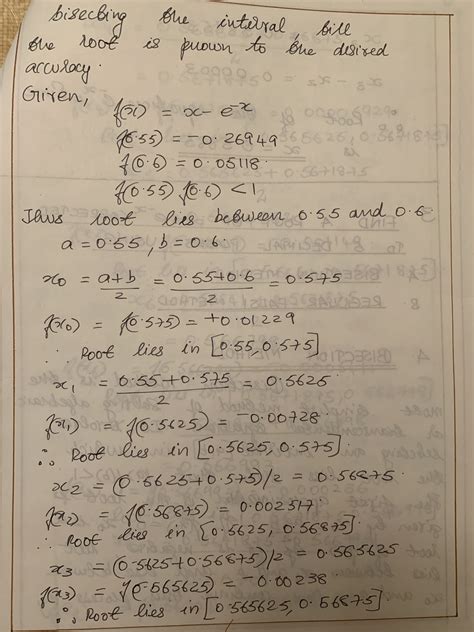 bisecting the interval, till
the root is known to the desired
accuracy.
Given,
f(x) = x - e^-x
f(0.55) = -0.26949
f(0.6) = 0.05118.
f(0.55) f(0.6) < 1
Thus root lies between 0.55 and 0.6
a = 0.55, b = 0.6.
x0 = a+b/2 = 0.55+0.6/2 = 0.575
f(x0) = f(0.575) = +0.01229
∴ Root lies in [0.55, 0.575]
x1 = 0.55+0.575/2 = 0.5625
f(x1) = f(0.5625) = -0.00728
∴ Root lies in [0.5625, 0.575]
x2 = (0.5625+0.575)/2 = 0.56875
f(x2) = f(0.56875) = 0.002517
∴ Root lies in [0.5625, 0.56875]
x3 = (0.5625+0.56875)/2 = 0.565625
f(x3) = f(0.565625) = -0.00238
∴ Root lies in [0.565625, 0.56875]